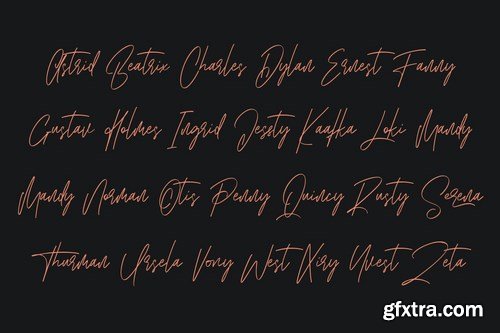 Astrid Beatrix Charles Dylan Ernest Fanny
Gustav Holmes Ingrid Jessty Kaafka Loki Mandy
Mandy Norman Otis Penny Quincy Rusty Serena
Thurman Ursela Vony West Xiry Yvest Zeta
gfxtra.com